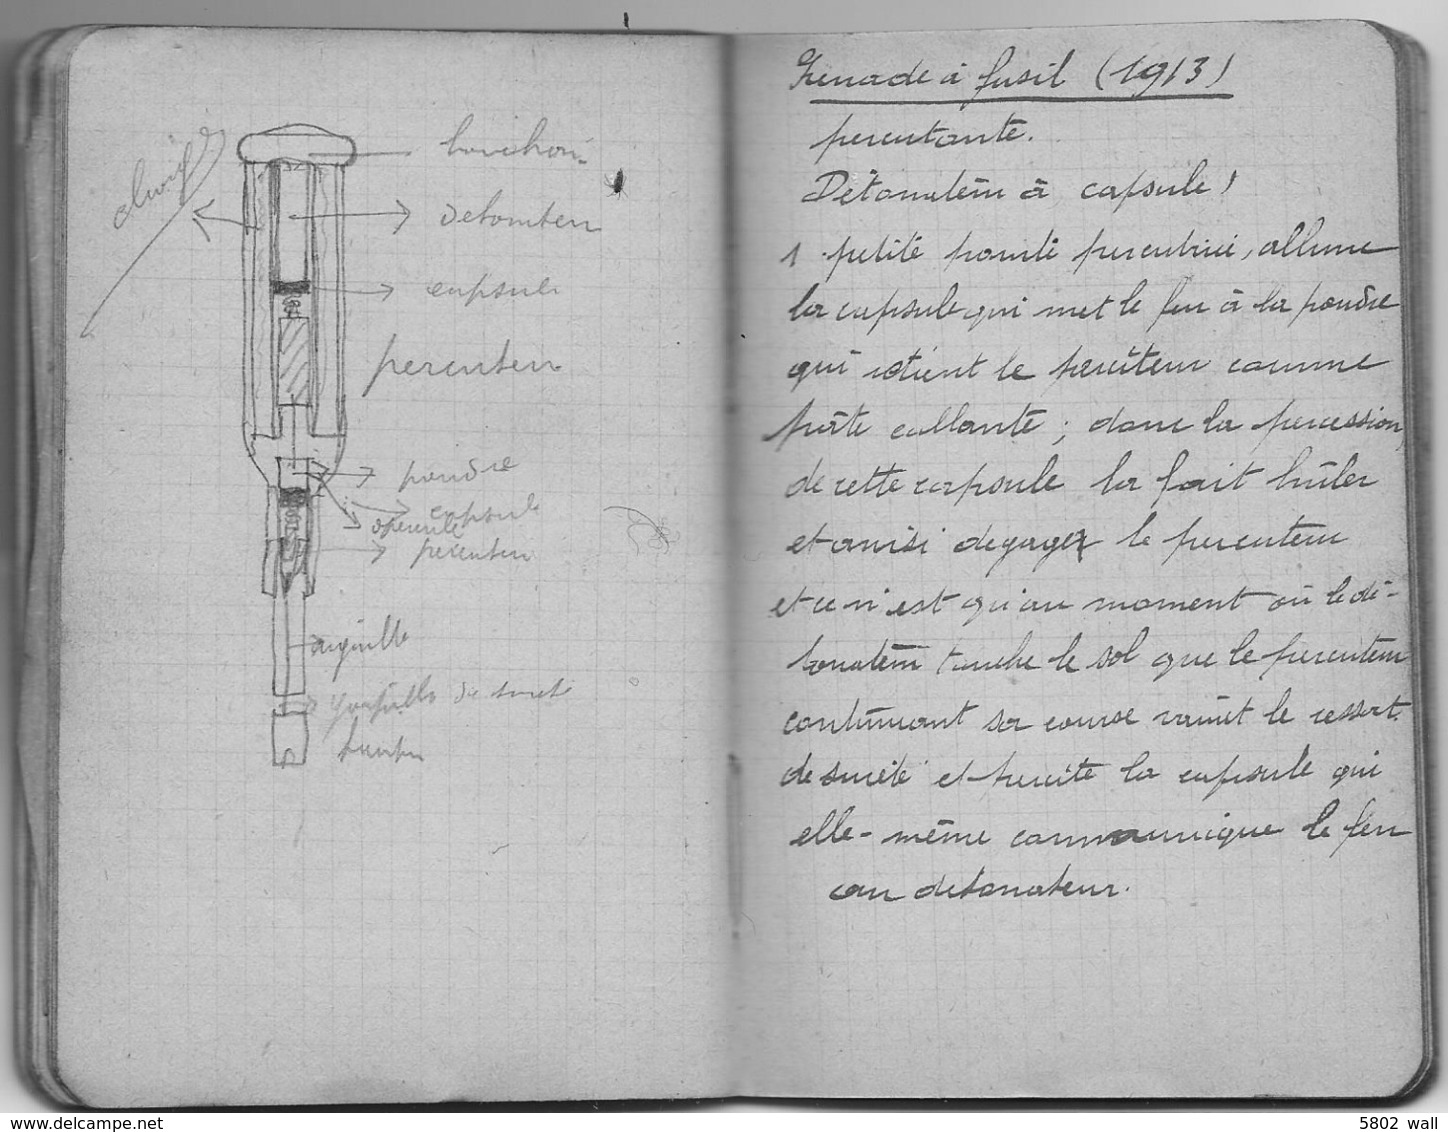 bouchon
détonateur
capsule
percuteur
poudre
capsule
opercule
percuteur
aiguille
goupille de sureté
Grenade à fusil (1913)
percutante.
Détonateur à capsule
1 petite pointe percutrice, allume
la capsule qui met le feu à la poudre
qui retient le percuteur comme
pâte collante ; donc la percession
de cette capsule la fait brûler
et ainsi degager le percuteur
et ce n'est qu'au moment où le dé-
tonateur touche le sol que le percuteur
continuant sa course vainct le ressort
de sureté et percute la capsule qui
elle-même communique le feu
au detonateur.
www.delcampe.net
5802 wall